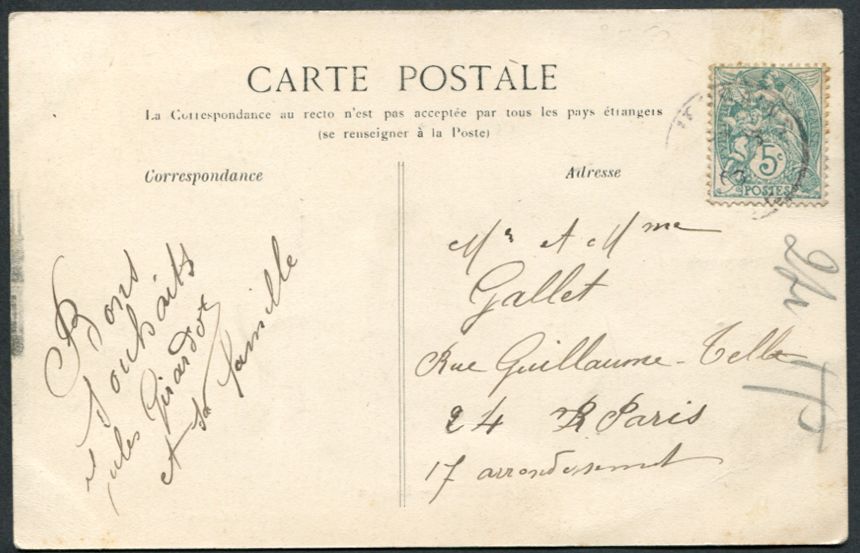 CARTE POSTALE
La Correspondance au recto n'est pas acceptée par tous les pays étrangers
(se renseigner à la Poste)
Correspondance
Adresse
5c
POSTES
Bons
Souhaits
Jules Girardot
et sa famille
Mr et Mme
Gallet
Rue Guillaume-Telle
24 Paris
17 arrondissement